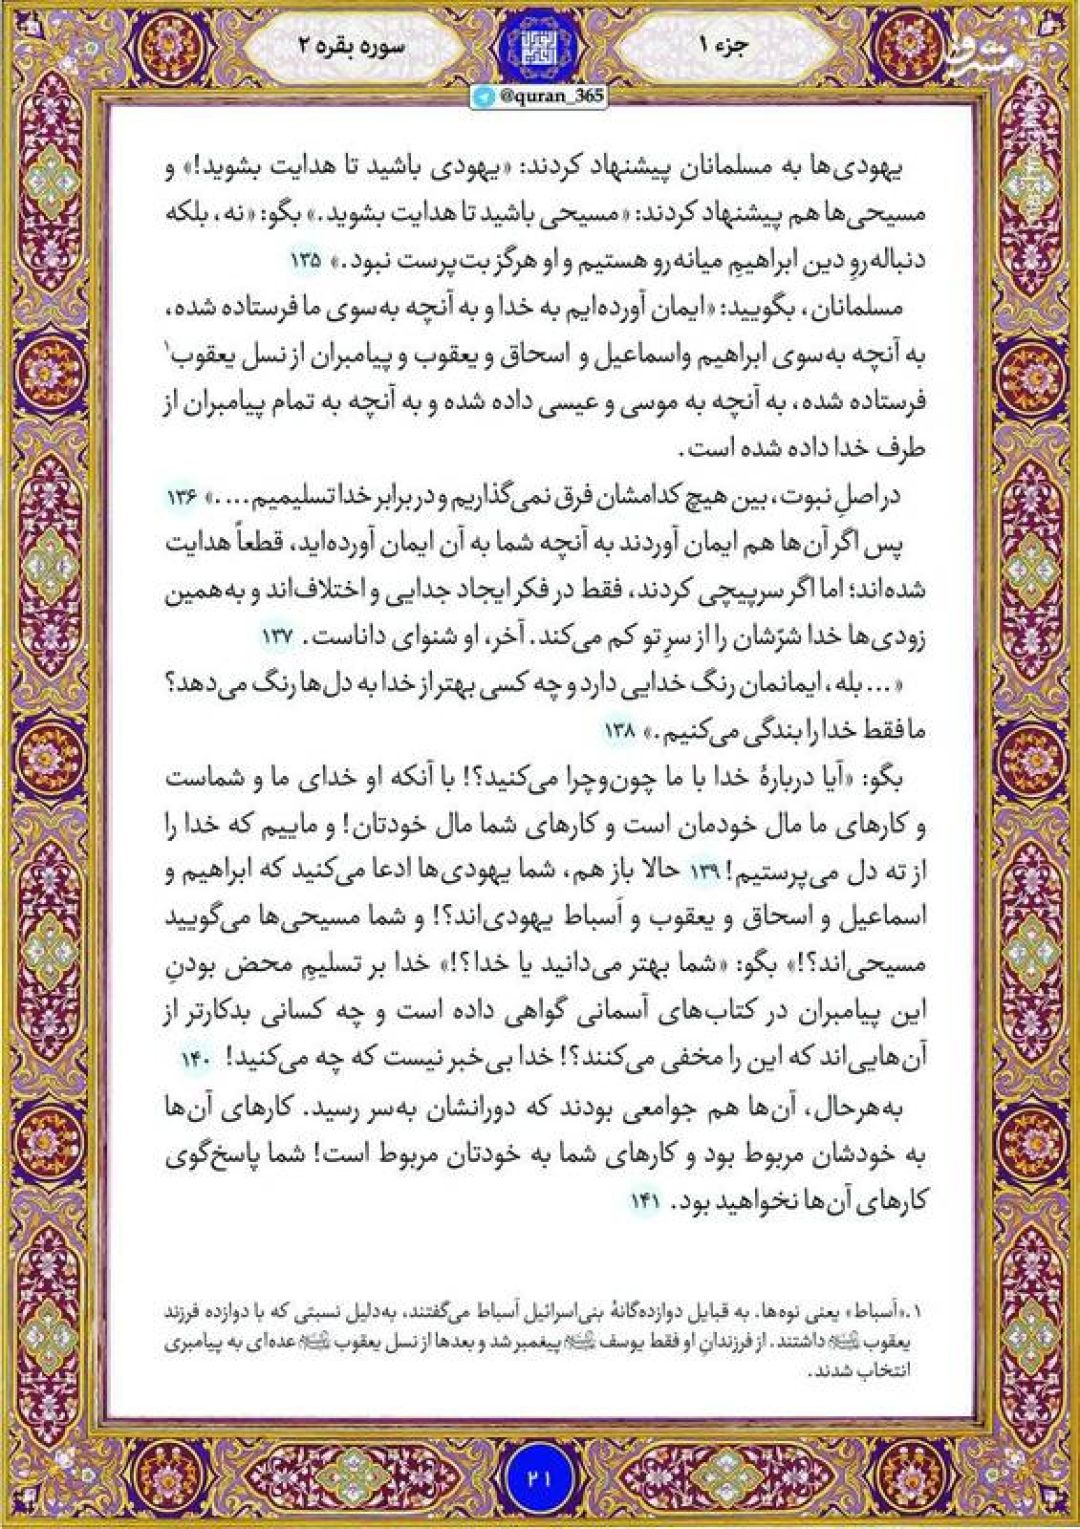 جزء ۱
سوره بقره ۲
@quran_365
یهودی‌ها به مسلمانان پیشنهاد کردند: «یهودی باشید تا هدایت بشوید!» و
مسیحی‌ها هم پیشنهاد کردند: «مسیحی باشید تا هدایت بشوید.» بگو: «نه، بلکه
دنباله‌روِ دین ابراهیمِ میانه‌رو هستیم و او هرگز بت‌پرست نبود.» ۱۳۵
مسلمانان، بگویید: «ایمان آورده‌ایم به خدا و به آنچه به‌سوی ما فرستاده شده،
به آنچه به‌سوی ابراهیم واسماعیل و اسحاق و یعقوب و پیامبران از نسل یعقوب۱
فرستاده شده، به آنچه به موسی و عیسی داده شده و به آنچه به تمام پیامبران از
طرف خدا داده شده است.
در اصلِ نبوت، بین هیچ کدامشان فرق نمی‌گذاریم و در برابر خدا تسلیمیم....» ۱۳۶
پس اگر آن‌ها هم ایمان آوردند به آنچه شما به آن ایمان آورده‌اید، قطعاً هدایت
شده‌اند؛ اما اگر سرپیچی کردند، فقط در فکر ایجاد جدایی و اختلاف‌اند و به‌همین
زودی‌ها خدا شرّشان را از سرِ تو کم می‌کند. آخر، او شنوای داناست. ۱۳۷
«... بله، ایمانمان رنگ خدایی دارد و چه کسی بهتر از خدا به دل‌ها رنگ می‌دهد؟
ما فقط خدا را بندگی می‌کنیم.» ۱۳۸
بگو: «آیا دربارهٔ خدا با ما چون‌وچرا می‌کنید؟! با آنکه او خدای ما و شماست
و کارهای ما مال خودمان است و کارهای شما مال خودتان! و ماییم که خدا را
از ته دل می‌پرستیم! ۱۳۹ حالا باز هم، شما یهودی‌ها ادعا می‌کنید که ابراهیم و
اسماعیل و اسحاق و یعقوب و اَسباط یهودی‌اند؟! و شما مسیحی‌ها می‌گویید
مسیحی‌اند؟!» بگو: «شما بهتر می‌دانید یا خدا؟!» خدا بر تسلیمِ محض بودنِ
این پیامبران در کتاب‌های آسمانی گواهی داده است و چه کسانی بدکارتر از
آن‌هایی‌اند که این را مخفی می‌کنند؟! خدا بی‌خبر نیست که چه می‌کنید! ۱۴۰
به‌هرحال، آن‌ها هم جوامعی بودند که دورانشان به‌سر رسید. کارهای آن‌ها
به خودشان مربوط بود و کارهای شما به خودتان مربوط است! شما پاسخ‌گوی
کارهای آن‌ها نخواهید بود. ۱۴۱
۱. «اَسباط» یعنی نوه‌ها. به قبایل دوازده‌گانهٔ بنی‌اسرائیل اَسباط می‌گفتند، به‌دلیل نسبتی که با دوازده فرزند
یعقوب داشتند. از فرزندانِ او فقط یوسف پیغمبر شد و بعدها از نسل یعقوب عده‌ای به پیامبری
انتخاب شدند.
۲۱